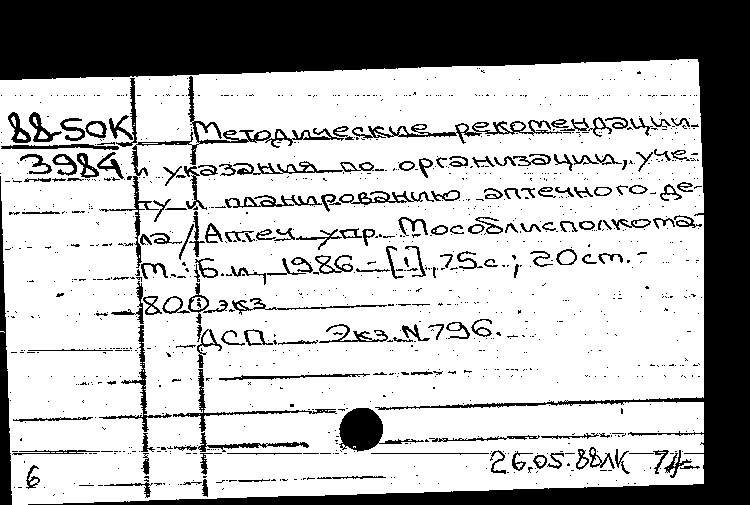 88-50К Методические рекомендации
3984 и указания по организации, уче-
ту и планированию аптечного де-
ла / Аптеч. упр. Мособлисполкома. -
М. : Б. и., 1986. - [1], 75 с. ; 20 см. -
800 экз.
ДСП. Экз. N 796.
26.05.88
6